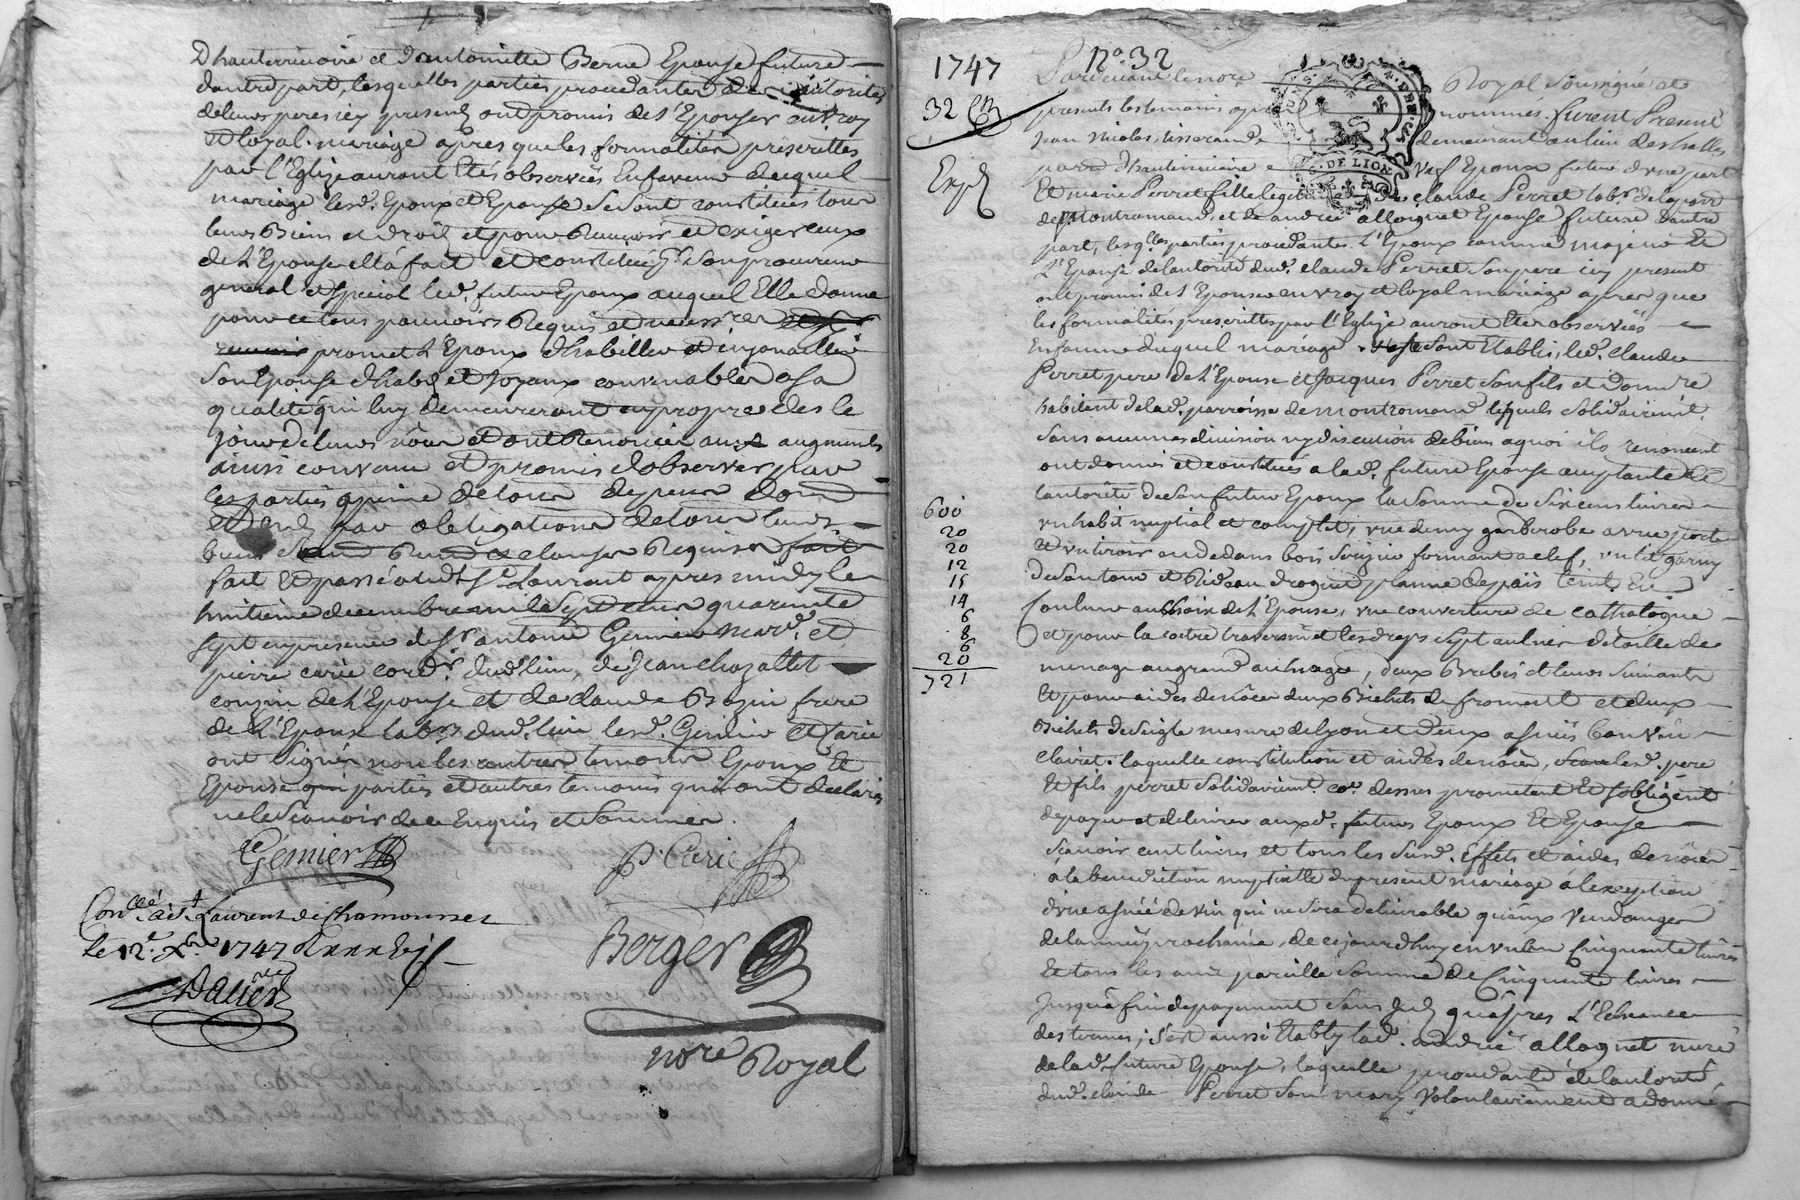 Dhauterivoire et dantoinette Berne Epouse future
dautre part, lesquelles parties procedantes de lautorité
de leurs peres icy presents ont promis de s'Epouser en vray
et loyal mariage apres que les formalités prescrittes
par l'Eglise auront Etés observées En faveur duquel
mariage lesd. Epoux et Epouse se sont constitués tous
leurs Biens et droits et pour Recevoir et Exiger ceux
de L'Epouse elle a fait et constitué son procureur
general et special led. futur Epoux auquel Elle donne
pour ce tous pouvoirs Requis et necessres
promet L'Epoux d'habiller et enjoyailler
son Epouse d'habits et Joyaux convenables a sa
qualité qui luy demeureront en propre des le
jour de leurs nôces et ont Renoncés aux augments
ainsi convenu et promis d'observer par
les parties a peine de tous depens
par obligations de tous leurs
biens clauses Requises
fait et passé aud St Laurant apres midy le
huitieme decembre mil sept cent quarante
sept en presence de Sr antoine Genier mard. et
pierre carie cordr. dud. lieu, de Jean chozallet
couzin de L'Epouse et de claude Bazin frere
de L'Epoux labrs dud. lieu lesd. Genier et Carie
ont signés non les autres temoins Epoux et
Epouse parties et autres temoins qui ont declarés
ne le scavoir de ce Enquis et sommés.
Genier
P. Carie
Conllé a St Laurent de Chamousset
le 12e Xbre 1747
Berger
Dalier
nore Royal
1747
No 32
32
Expd
Pardevant le nore Royal soussigné et
presents les temoins apres nommés furent Present
Jean nicolas tisserand demeurant au lieu des halles
paroisse d'hauterivoire Vef Epoux futur d'une part
Et marie Perret fille legitime de claude Perret labr. de la parre
de Montromand, et de andrée alloguet Epouse future dautre
part, lesqlles parties procedantes L'Epoux comme majeur et
L'Epouse de lautorité dud. claude Perret son pere icy present
ont promis de s'Epouser en vray et loyal mariage apres que
les formalités prescrittes par l'Eglise auront Etés observées
En faveur duquel mariage se sont Etablis, led. claude
Perret pere de L'Epouse et Jacques Perret son fils et
habitant de lad. parroisse de montromand lesquels solidairemt.
sans aucunes division ny discution de biens a quoi ils renoncent
ont donnés et constitués a lad. future Epouse acceptante de
lautorité de son futur Epoux la somme de six cent livres
un habit nuptial et complet, une demy garderobe a une porte
et un tiroir au dedans bois Sapin fermant a clef, un lit garny
de sa tour et Rideau droguet plaine de pais teint En
Couleur au choix de L'Epouse, une couverture de cathalogne
et pour la coitre traversin et les draps sept aulnes de toille de
menage au grand aulnage, deux Brebis et leurs suivants
Et pour aides de nôces deux Bichets de froment et deux
Bichets de seigle mesure de Lyon et deux asnées bon vin
clairet. laquelle constitution et aides de nôces, lesd. pere
Et fils perret solidairemt. co. dessus promettent et s'obligent
de payer et delivrer auxd. futurs Epoux et Epouse
scavoir cent livres et tous les susd. Effets et aides de nôces
a la benediction nuptialle du present mariage a l'exception
d'une asnée de vin qui ne sera delivrable qu'aux vendanges
de lannée prochaine, de ce jourd'huy en un an Cinquante livres
Et tous les ans pareille somme de Cinquante livres
Jusqu'a fin de payement sans qu'apres L'Echeance
des termes; s'est aussi Etably lad. andrée alloguet mere
de lad. future Epouse, laquelle procedante de lautorité
dud. claude Perret son mary volontairement a donné
600
20
20
12
15
14
6
8
6
20
721
DE LION